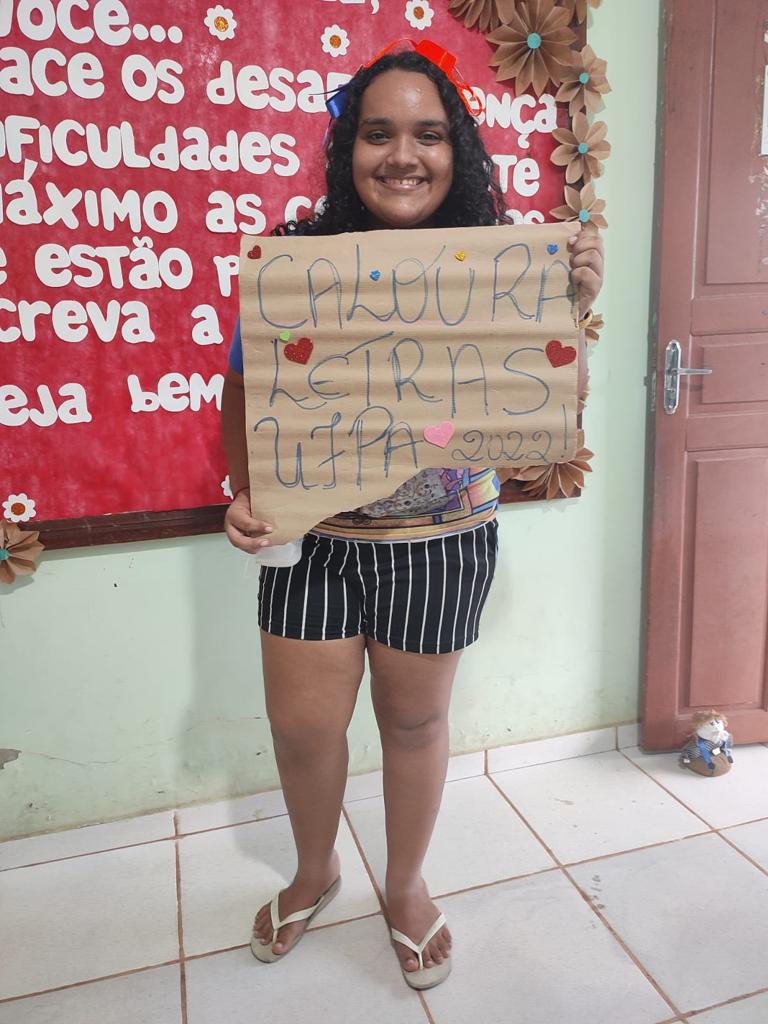 VOCÊ...
ACE OS DESA
ENÇA
IFICULDADES
TÉ
MÁXIMO AS
E ESTÃO P
CREVA A
EJA BEM
CALOURA
LETRAS
UFPA 2022!